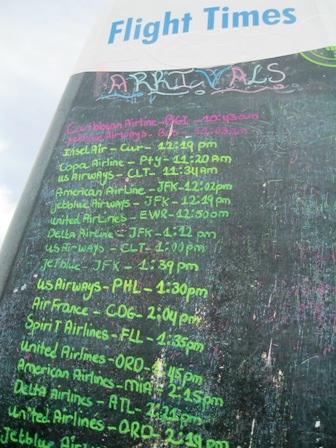 Flight Times
ARRIVALS
Caribbean Airline - BGI - 10:45am
jetblue Airways - BOS - 11:03am
Insel Air - Cur - 12:19 pm
Copa Airline - Pty - 11:20 Am
us Airways - CLT - 11:34 Am
American Airline - JFK - 12:02pm
jetblue Airways - JFK - 12:19pm
united Airlines - EWR - 12:50pm
Delta Airline - JFK - 1:12 pm
us Airways - CLT - 1:00 pm
jetblue - JFK - 1:39pm
us Airways - PHL - 1:30pm
Air France - CDG - 2:04pm
Spirit Airlines - FLL - 1:35pm
united Airlines - ORD - 1:45pm
American Airlines - MIA - 2:15pm
Delta Airlines - ATL - 2:21pm
united Airlines - ORD - 2:19 pm
Jetblue